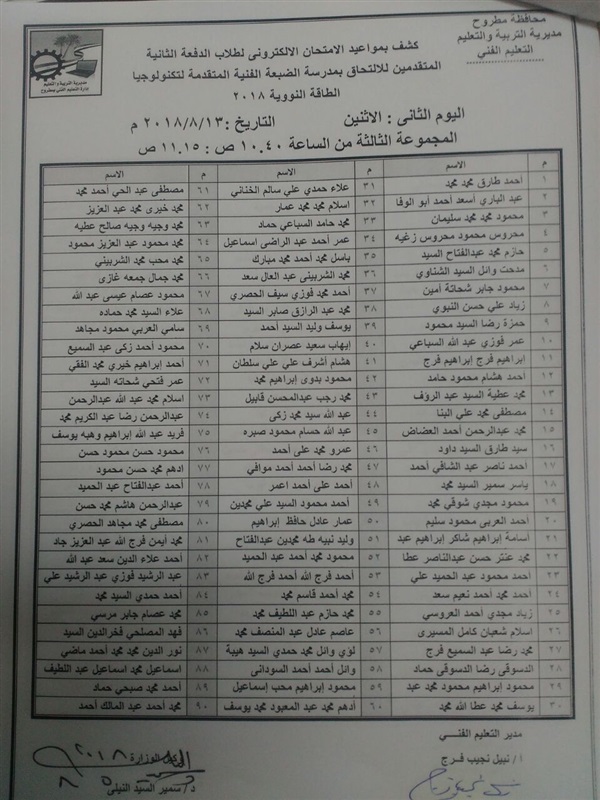 محافظة مطروح
مديرية التربية والتعليم
التعليم الفني
مديرية التربية والتعليم
إدارة التعليم الفني بمطروح
كشف بمواعيد الامتحان الالكترونى لطلاب الدفعة الثانية
المتقدمين للالتحاق بمدرسة الضبعة الفنية المتقدمة لتكنولوجيا
الطاقة النووية ٢٠١٨
اليوم الثانى : الاثنين التاريخ :٢٠١٨/٨/١٣ م
المجموعة الثالثة من الساعة ١٠.٤٠ ص : ١١.١٥ ص
م الاسم م الاسم م الاسم
١ أحمد طارق محمد محمد ٣١ علاء حمدي علي سالم الخناني ٦١ مصطفى عبد الحي أحمد محمد
٢ عبد الباري أسعد أحمد أبو الوفا ٣٢ اسلام محمد محمد عمار ٦٢ محمد خيرى محمد عبد العزيز
٣ محمود محمد محمد سليمان ٣٣ محمد حامد السباعي حماد ٦٣ محمد وجيه وجيه صالح عطيه
٤ محروس محمود محروس زغيه ٣٤ عمر أحمد عبد الراضى اسماعيل ٦٤ محمد محمود عبد العزيز محمود
٥ حازم محمد عبدالفتاح السيد ٣٥ باسل محمد أحمد محمد مبارك ٦٥ محمد محب محمد الشربيني
٦ مدحت وائل السيد الشناوي ٣٦ محمد الشربيني عبد العال سعد ٦٦ محمد جمال جمعه غازى
٧ محمود جابر شحاتة أمين ٣٧ أحمد محمد فوزي سيف الحصري ٦٧ محمود عصام عيسى عبد الله
٨ زياد علي حسن النبوي ٣٨ محمد عبد الرازق صابر السيد ٦٨ علاء السيد محمد حماده
٩ حمزة رضا السيد محمود ٣٩ يوسف وليد السيد أحمد ٦٩ سامي العربي محمود مجاهد
١٠ عمر فوزي عبد الله السباعي ٤٠ إيهاب سعيد عصران سلام ٧٠ محمود أحمد زكى عبد السميع
١١ ابراهيم فرج إبراهيم فرج ٤١ هشام أشرف علي علي سلطان ٧١ أحمد إبراهيم خيري محمد الفقي
١٢ أحمد هشام محمود حامد ٤٢ محمود بدوى إبراهيم محمد ٧٢ عمر فتحي شحاته السيد
١٣ محمد عطية السيد عبد الرؤف ٤٣ محمد رجب عبدالمحسن قابيل ٧٣ اسلام محمد عبد الله عبدالرحمن
١٤ مصطفى محمد علي البنا ٤٤ عبد الله سيد محمد زكى ٧٤ عبدالرحمن رضا عبد الكريم محمد
١٥ محمد عبدالرحمن أحمد العضاض ٤٥ عبد الله حسام محمود صبره ٧٥ فريد عبد الله إبراهيم وهبه يوسف
١٦ سيد طارق السيد داود ٤٦ عمرو محمد على أحمد ٧٦ محمود حسن محمود حسن
١٧ أحمد ناصر عبد الشافي أحمد ٤٧ محمد رضا أحمد أحمد موافي ٧٧ ادهم محمد حسن محمود
١٨ ياسر سمير السيد محمد ٤٨ أحمد على أحمد اعمر ٧٨ أحمد عبدالفتاح عبد الحميد
١٩ محمود مجدي شوقي محمد ٤٩ أحمد محمود السيد علي محمدين ٧٩ عبدالرحمن هاشم محمد حسن
٢٠ أحمد العربي محمود سليم ٥٠ عمار عادل حافظ إبراهيم ٨٠ مصطفى محمد مجاهد الحصري
٢١ أسامة إبراهيم شاكر إبراهيم عبد ٥١ وليد نبيه طه محمدين عبدالفتاح ٨١ محمد أيمن فرج الله عبد العزيز جاد
٢٢ محمد عنتر حسن عبدالناصر عطا ٥٢ محمود محمد أحمد عبد الحميد ٨٢ أحمد علاء الدين سعد عبد الله
٢٣ أحمد محمود عبد الحميد علي ٥٣ أحمد فرج الله أحمد فرج الله ٨٣ عبد الرشيد فوزي عبد الرشيد علي
٢٤ أحمد محمد أحمد نعيم سعد ٥٤ محمد أحمد قاسم محمد ٨٤ أحمد حمدي السيد محمد
٢٥ زياد مجدي أحمد العروسي ٥٥ محمد حازم عبد اللطيف محمد ٨٥ محمد عصام جابر مرسي
٢٦ اسلام شعبان كامل المسيرى ٥٦ عاصم عادل عبد المنصف محمد ٨٦ فهد المصلحي فخرالدين السيد
٢٧ محمد رضا عبد السميع فرج ٥٧ لؤي وائل محمد حمدي السيد هيبة ٨٧ نور الدين محمد محمد أحمد ماضي
٢٨ الدسوقى رضا الدسوقى حماد ٥٨ وائل أحمد أحمد السودانى ٨٨ اسماعيل محمد اسماعيل عبد اللطيف
٢٩ محمود إبراهيم محمود محمد عبد ٥٩ محمود إبراهيم محب إسماعيل ٨٩ أحمد محمد صبحي حماد
٣٠ يوسف محمد عطا الله محمد ٦٠ أدهم محمد عبد المعبود محمد يوسف ٩٠ محمد أحمد عبد المالك أحمد
مدير التعليم الفنـي
أ/ نبيل نجيب فـرج
وكيل الوزارة
٢٠١٨
د/ سمير السيد النيلى
٥ ٨